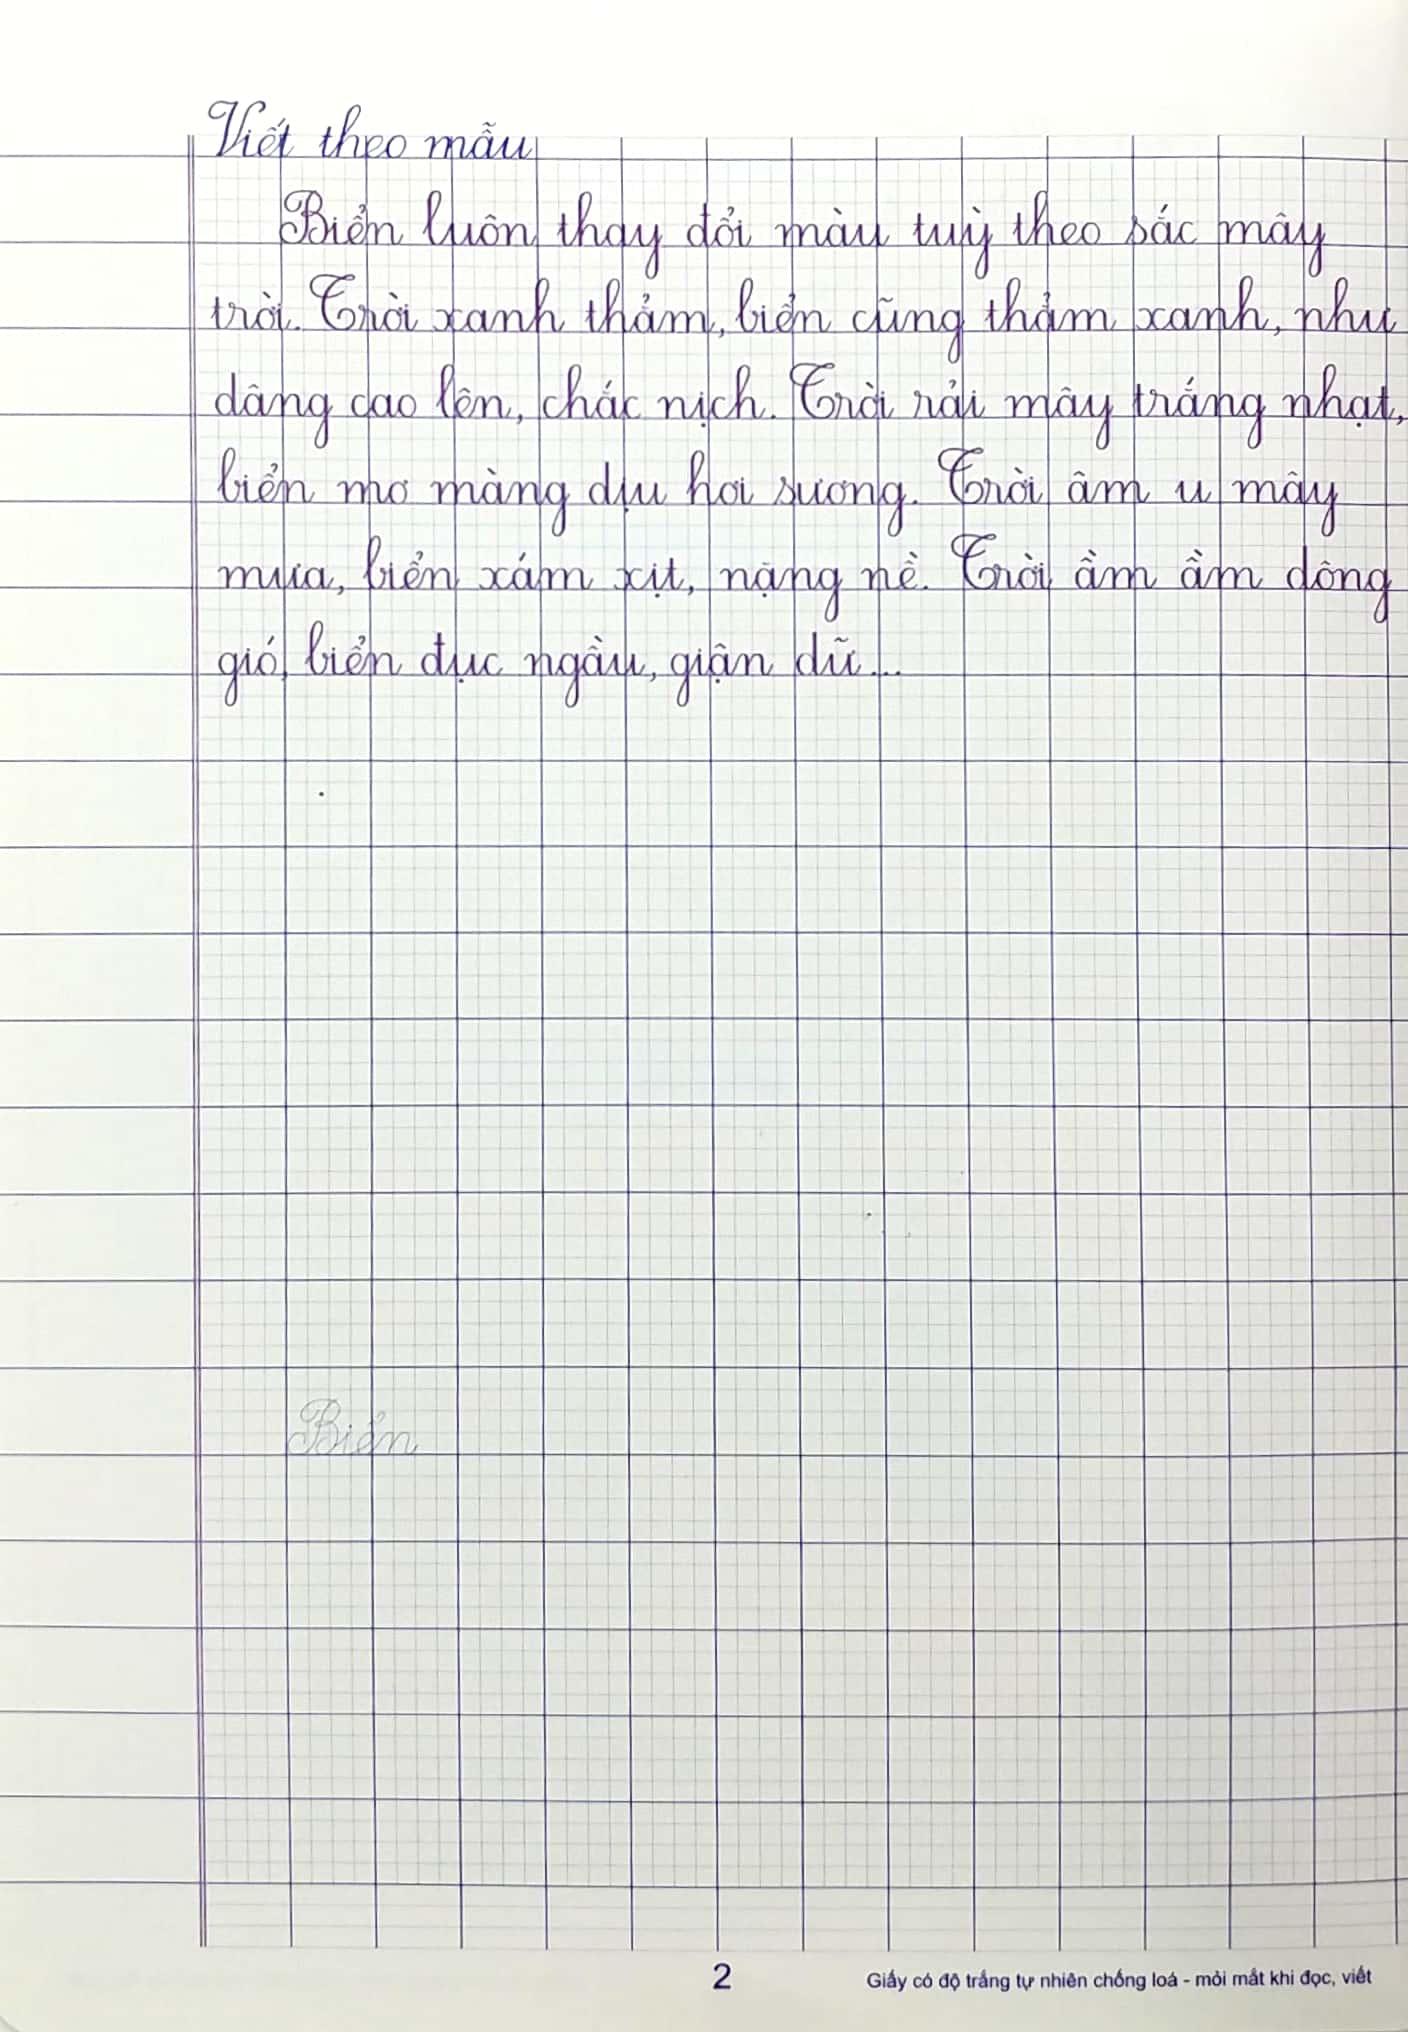 Viết theo mẫu
Biển luôn thay đổi màu tuỳ theo sắc mây
trời. Trời xanh thẳm, biển cũng thẳm xanh, như
dâng cao lên, chắc nịch. Trời rải mây trắng nhạt,
biển mơ màng dịu hơi sương. Trời âm u mây
mưa, biển xám xịt, nặng nề. Trời ầm ầm dông
gió, biển đục ngầu, giận dữ...
Biển
2
Giấy có độ trắng tự nhiên chống loá - mỏi mắt khi đọc, viết